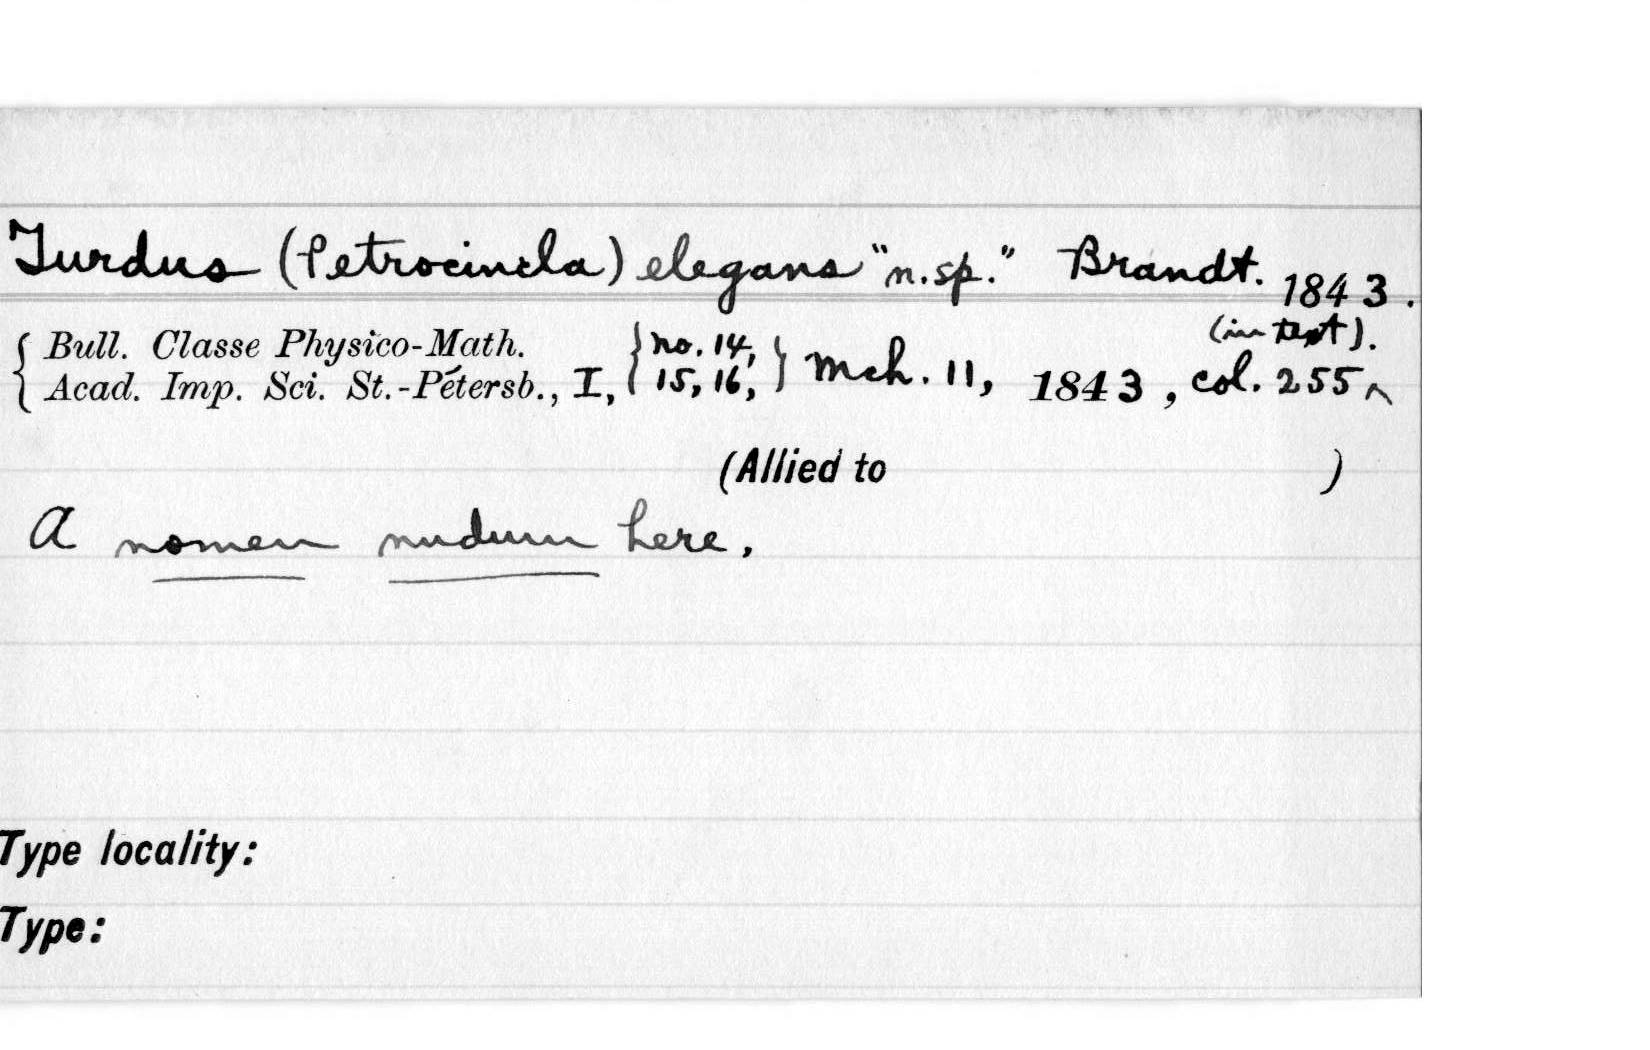 Turdus (Petrocincla) elegans "n.sp." Brandt. 1843.
{ Bull. Classe Physico-Math. } no. 14, } (in text).
{ Acad. Imp. Sci. St.-Pétersb., I, { 15, 16, } Mch. 11, 1843, col. 255 ^
(Allied to )
A nomen nudum here.
Type locality:
Type: